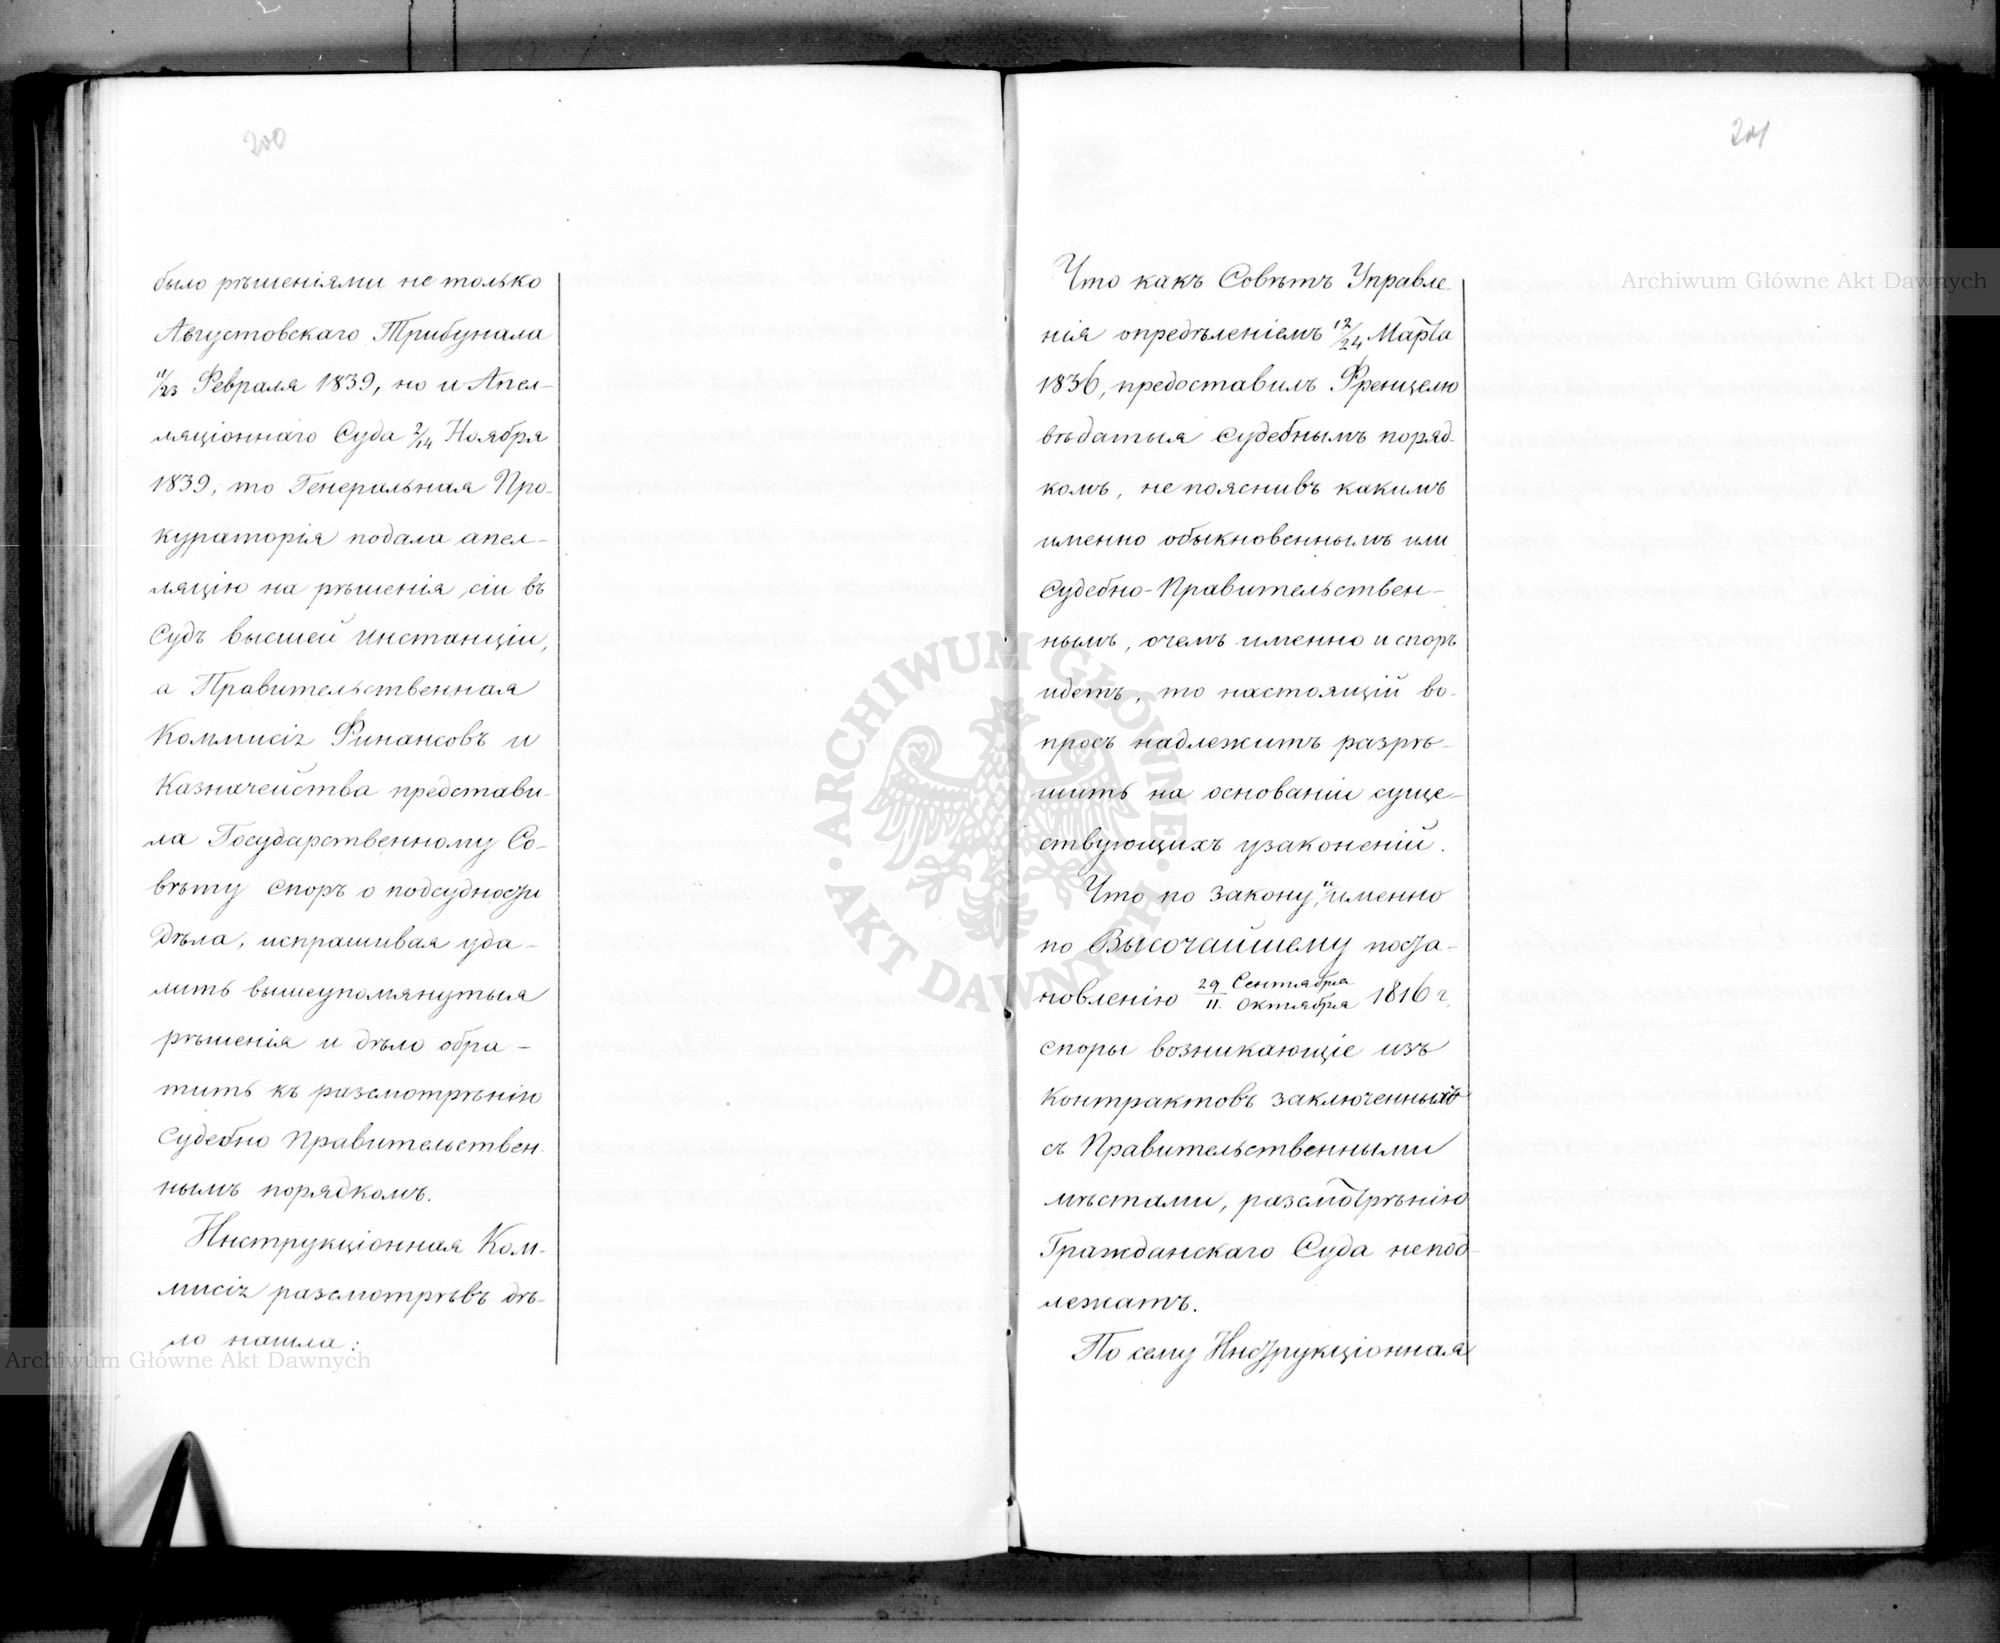 200
было рѣшеніями не только
Августовскаго Трибунала
11/23 Февраля 1839, но и Апел-
ляціоннаго Суда 2/14 Ноября
1839, то Генеральная Про-
кураторія подала апел-
ляцію на рѣшенія сіи въ
Судъ высшей инстанціи,
а Правительственная
Коммисія Финансовъ и
Казначейства представи-
ла Государственному Со-
вѣту споръ о подсудности
дѣла, испрашивая уда-
лить вышеупомянутыя
рѣшенія и дѣло обра-
тить къ разсмотрѣнію
Судебно Правительствен-
нымъ порядкомъ.
Инструкціонная Ком-
мисія разсмотрѣвъ дѣ-
ло нашла:
201
Что какъ Совѣтъ Управле-
нія опредѣленіемъ 12/24 Марта
1836, предоставилъ Френцелю
вѣдатыя судебнымъ поряд-
комъ, не пояснивъ какимъ
именно обыкновеннымъ или
Судебно-Правительствен-
нымъ, очемъ именно и споръ
идетъ, то настоящій во-
просъ надлежитъ разрѣ-
шить на основаніи суще-
ствующихъ узаконеній.
Что по закону, "именно
по Высочайшему поста-
новленію 29 Сентября / 11. Октября 1816 г.
споры возникающіе изъ
контрактовъ заключенныхъ
съ Правительственными
мѣстами, разсмотрѣнію
Гражданскаго Суда непод-
лежатъ.
По сему Инструкціонная
Archiwum Główne Akt Dawnych
Archiwum Główne Akt Dawnych
ARCHIWUM GŁÓWNE AKT DAWNYCH